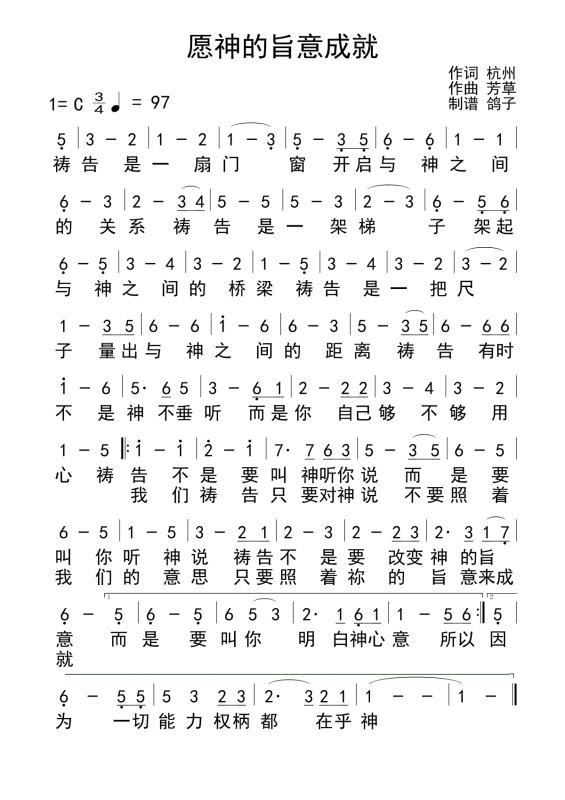 愿神的旨意成就
作词 杭州
作曲 芳草
制谱 鸽子
1= C 3/4 ♩ = 97
5̣ | 3 － 2 | 1 － 2 | 1 － 3̣ | 5̣ － 3̣ 5̣ | 6̣ － 6̣ | 1 － 1 |
祷 告 是 一 扇 门 窗 开 启 与 神 之 间
6̣ － 3 | 2 － 3 4 | 5 － 5 | 5 － 3 | 2 － 3 | 6̣ － 5̣ 6̣ |
的 关 系 祷 告 是 一 架 梯 子 架起
6̣ － 5̣ | 3 － 4 | 3 － 2 | 1 － 5̣ | 3 － 4 | 3 － 2 | 3 － 2 |
与 神 之 间 的 桥 梁 祷 告 是 一 把 尺
1 － 3 5 | 6 － 6 | i － 6 | 6 － 3 | 5 － 3 5 | 6 － 6 6 |
子 量出 与 神 之 间 的 距 离 祷 告 有时
i － 6 | 5· 6 5 | 3 － 6̣ 1 | 2 － 2 2 | 3 － 4 | 3 － 2 |
不 是 神 不垂 听 而是 你 自己 够 不 够 用
1 － 5 ‖: i － i | 2̇ － i | 7· 7 6 3 | 5 － 3 5 | 6 － 5 |
心 祷 告 不 是 要 叫 神听你 说 而 是 要
我 们 祷 告 只 要对神 说 不 要 照 着
6 － 5 | 1 － 5 | 3 － 2 1 | 2 － 3 | 2 － 2 3 | 2· 3 1 7̣ |
叫 你 听 神 说 祷告 不 是 要 改变 神 的旨
我 们 的 意 思 只要 照 着 祢 的 旨 意来成
1.
2.
6̣ － 5̣ | 6̣ － 5̣ | 6 5 3 | 2· 1 6̣ 1 | 1 － 5 6 :‖ 5̣ |
意 而 是 要 叫 你 明 白神心 意 所以 因
就
6̣ － 5̣ 5̣ | 5 3 2 3 | 2· 3 2 1 | 1 － － | 1 － ‖
为 一切 能 力 权柄 都 在乎 神